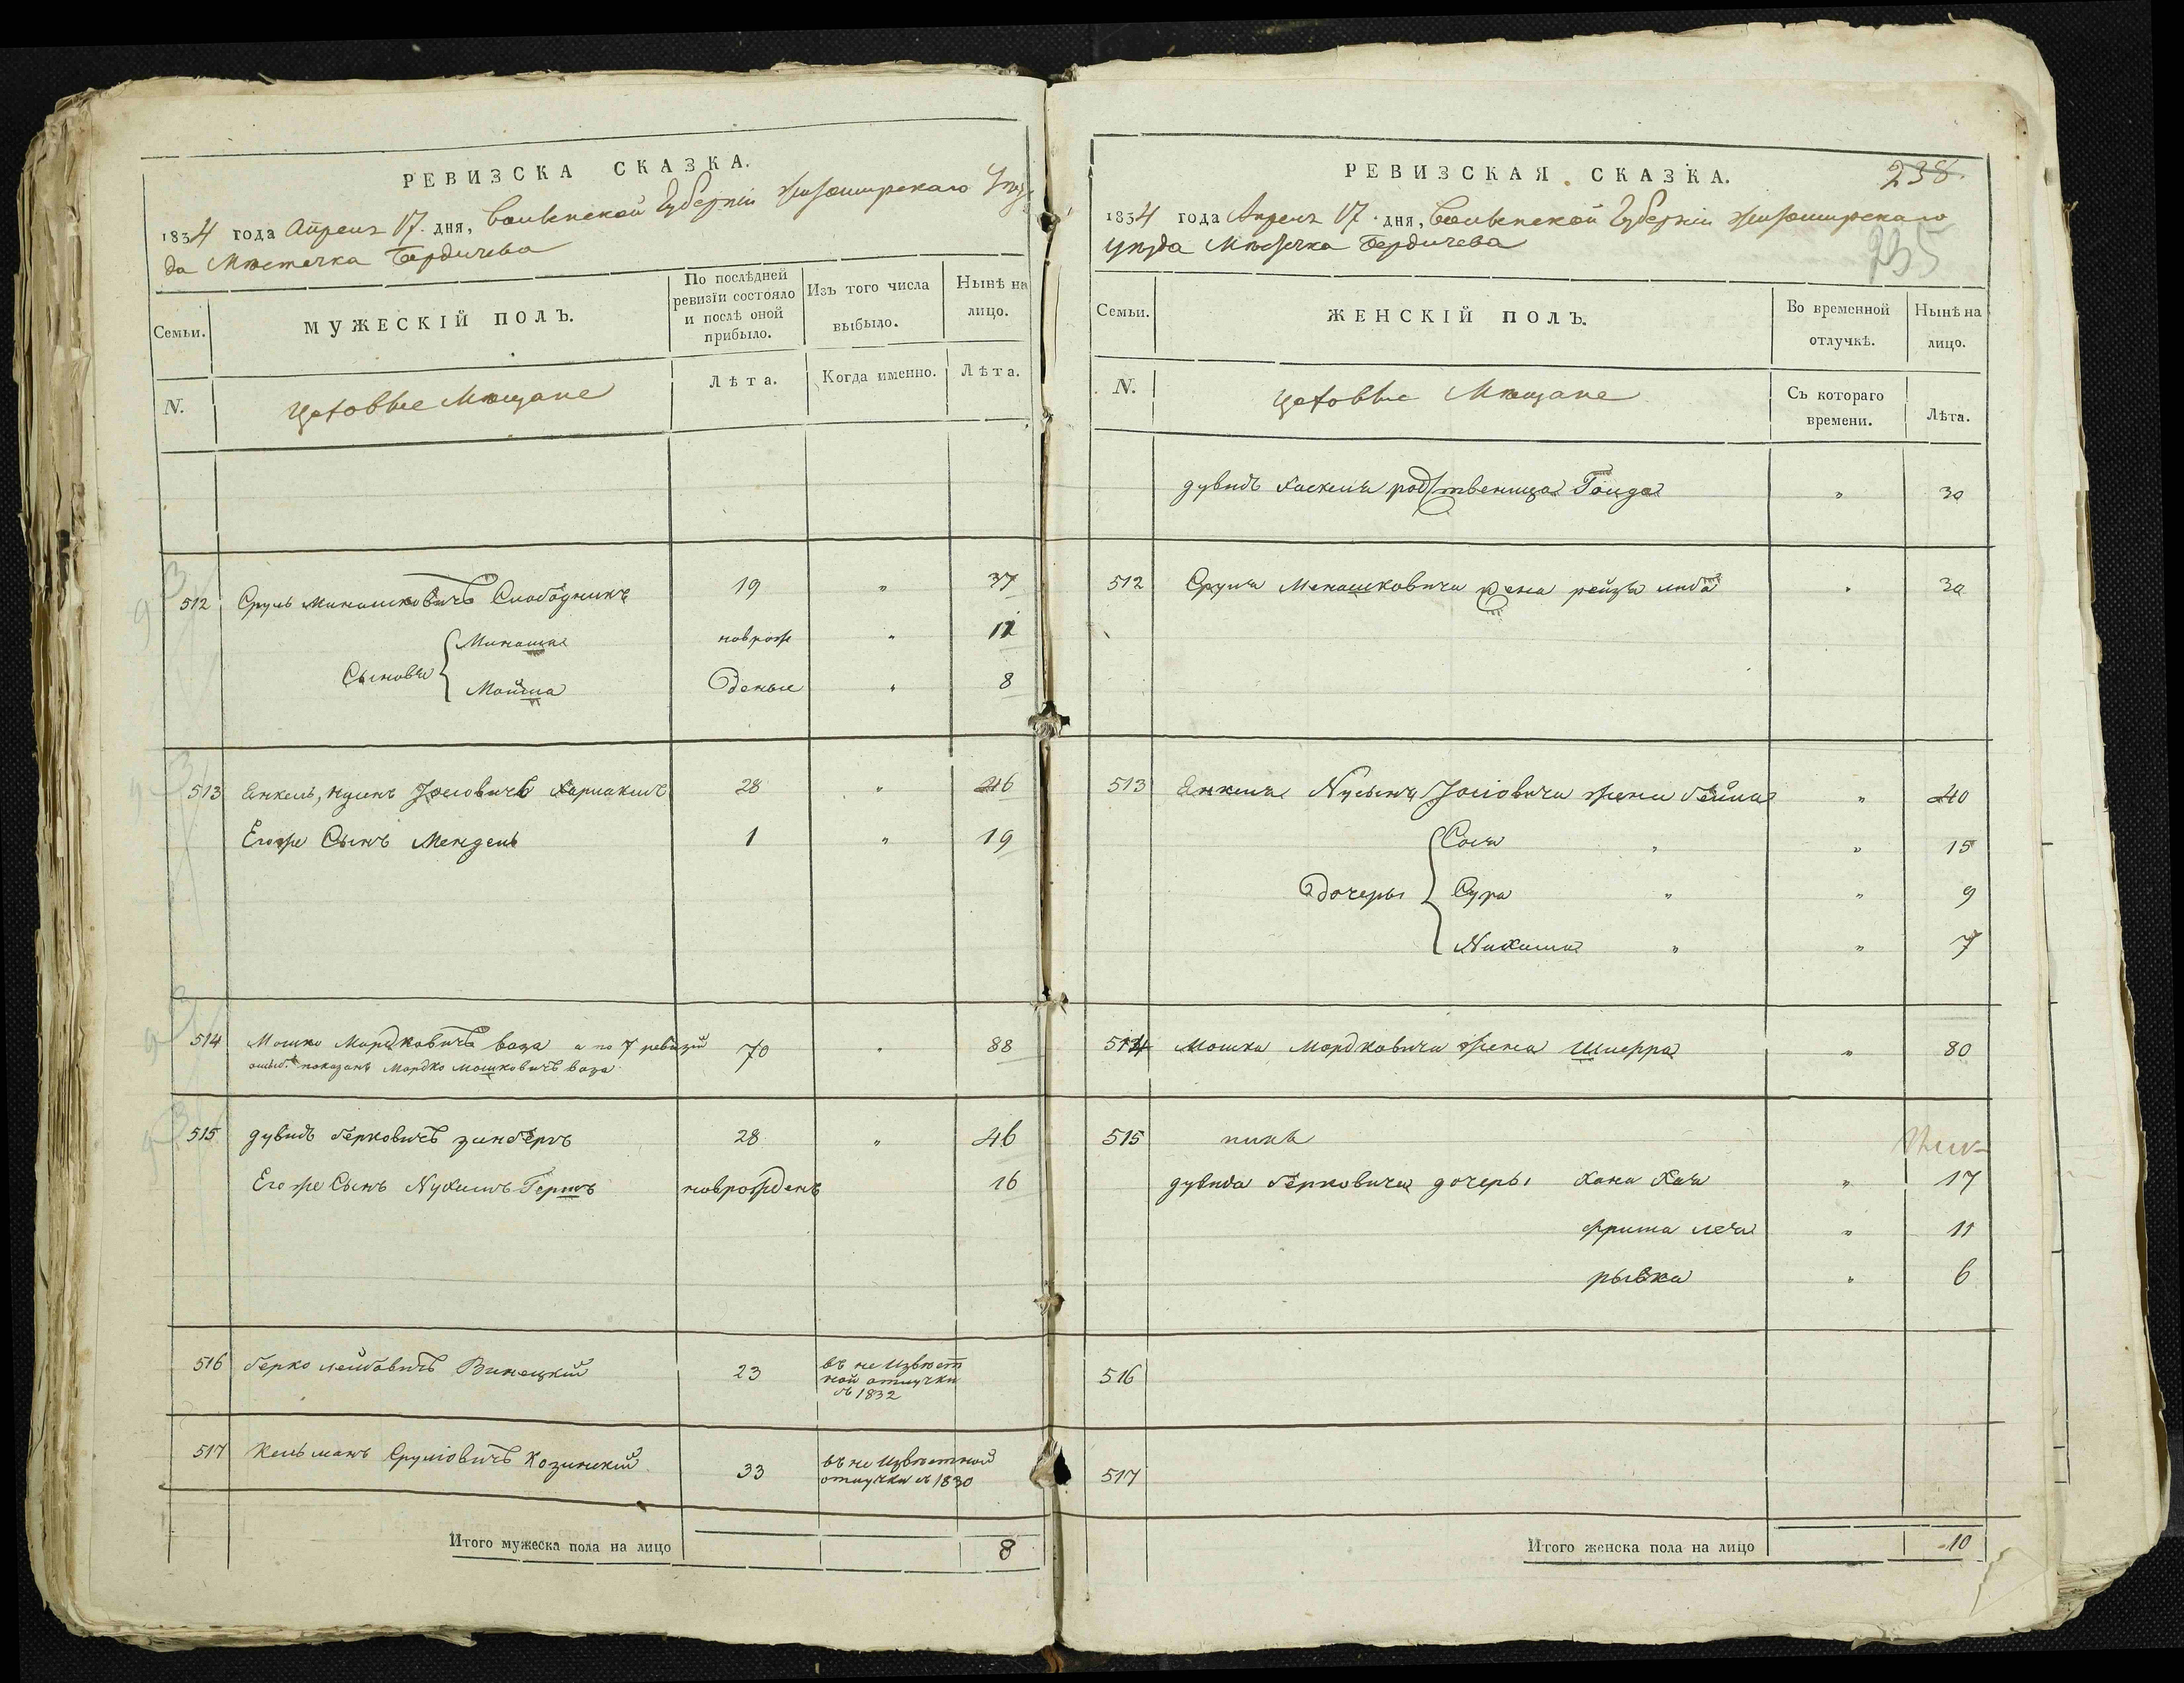 РЕВИЗСКА СКАЗКА.
1834 года Апреля 17. дня, Волынской Губерніи Житомирскаго Уѣз
да Мѣстечка Бердичева
Семьи.
МУЖЕСКІЙ ПОЛЪ.
По послѣдней ревизіи состояло и послѣ оной прибыло.
Изъ того числа выбыло.
Нынѣ на лицо.
N.
Цеховые Мѣщане
Лѣта.
Когда именно.
Лѣта.
512 Сруль Минашковичъ Слободникъ 19 " 37
Сыновья
Минаша новрож " 11
Мойша Деные " 8
513 Янкель, нусинъ Іосіовичъ 28 " 46
Егоже Сынъ Мендель 1 " 19
514 Мошко Мордковичъ ваза а по 7 ревизіи 70 " 88
ошиб. показанъ Мордко Мошковичъ ваза
515 дувидъ берковичъ зинберъ 28 " 46
Егоже Сынъ Нухимъ Гершъ новрожденъ 16
516 берко лейбовичъ Винецкій 23 въ не Извѣст
ной отлучки
съ 1832
517 Кельманъ Сруліовичъ Козинскій 33 въ не Извѣстной
отлучки съ 1830
Итого мужеска пола на лицо 8
РЕВИЗСКАЯ СКАЗКА.
238.
1834 года Апреля 17. дня, Волынской Губерніи Житомирскаго
235
уѣзда Мѣстечка Бердичева
Семьи.
ЖЕНСКІЙ ПОЛЪ.
Во временной отлучкѣ.
Нынѣ на лицо.
N.
Цеховые Мѣщане
Съ котораго времени.
Лѣта.
дувидъ Хаскеля родственица Голда " 30
512 Сруля Менашковича жена рейзя либа " 30
513 Янкеля Нусынъ Іосіовича жена бейла " 40
Дочеры
Сося " " 15
Сура " " 9
" " 7
514 Мошка Мордковича жена Шифра " 80
515 нима
дувида берковича дочеры Хана Хая " 17
Фрима лея " 11
рывка " 6
516
517
Итого женска пола на лицо 10